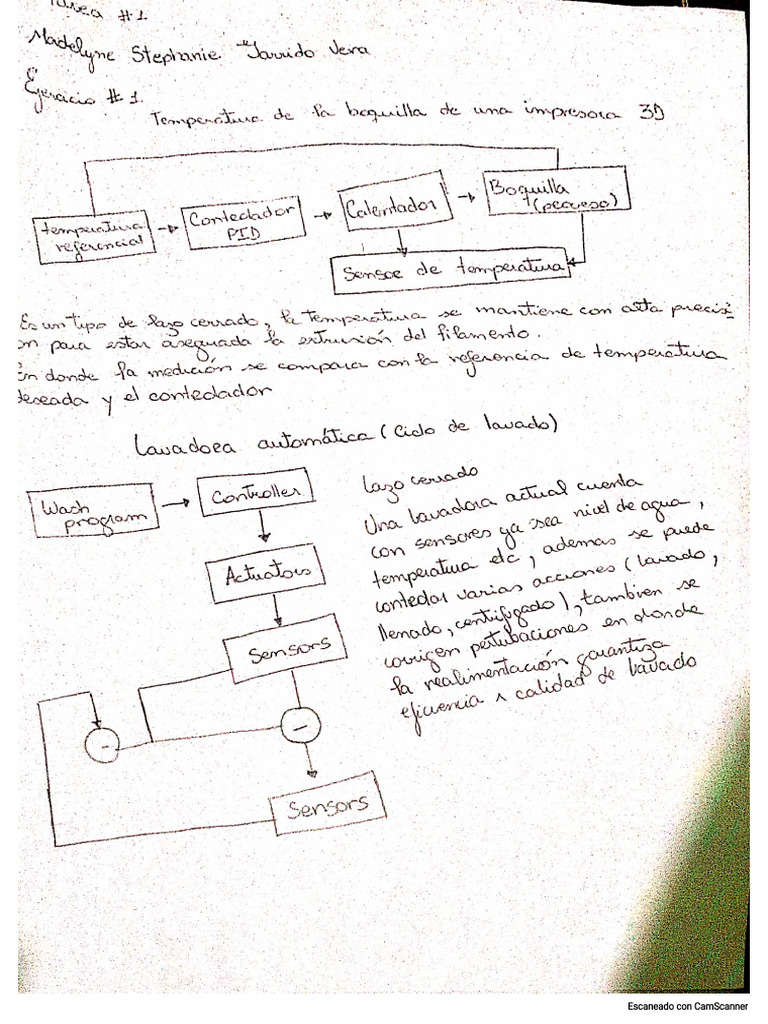 Tarea #1
Madelyne Stephanie Garrido Vera
Ejercicio #1.
Temperatura de la boquilla de una impresora 3D
temperatura
referencial
Controlador
PID
Calentador
Boquilla
+(proceso)
Sensor de temperatura
Es un tipo de lazo cerrado, la temperatura se mantiene con alta precisi
on para estar asegurada la extrusión del filamento.
En donde la medición se compara con la referencia de temperatura
deseada y el controlador
Lavadora automática (ciclo de lavado)
Wash
program
Controller
Actuators
Sensors
-
-
Sensors
Lazo cerrado
Una lavadora actual cuenta
con sensores ya sea nivel de agua,
temperatura etc, ademas se puede
controlar varias acciones (lavado,
llenado, centifugado), tambien se
corrigen pertubaciones en donde
la realimentación garantiza
eficiencia y calidad de lavado
Escaneado con CamScanner